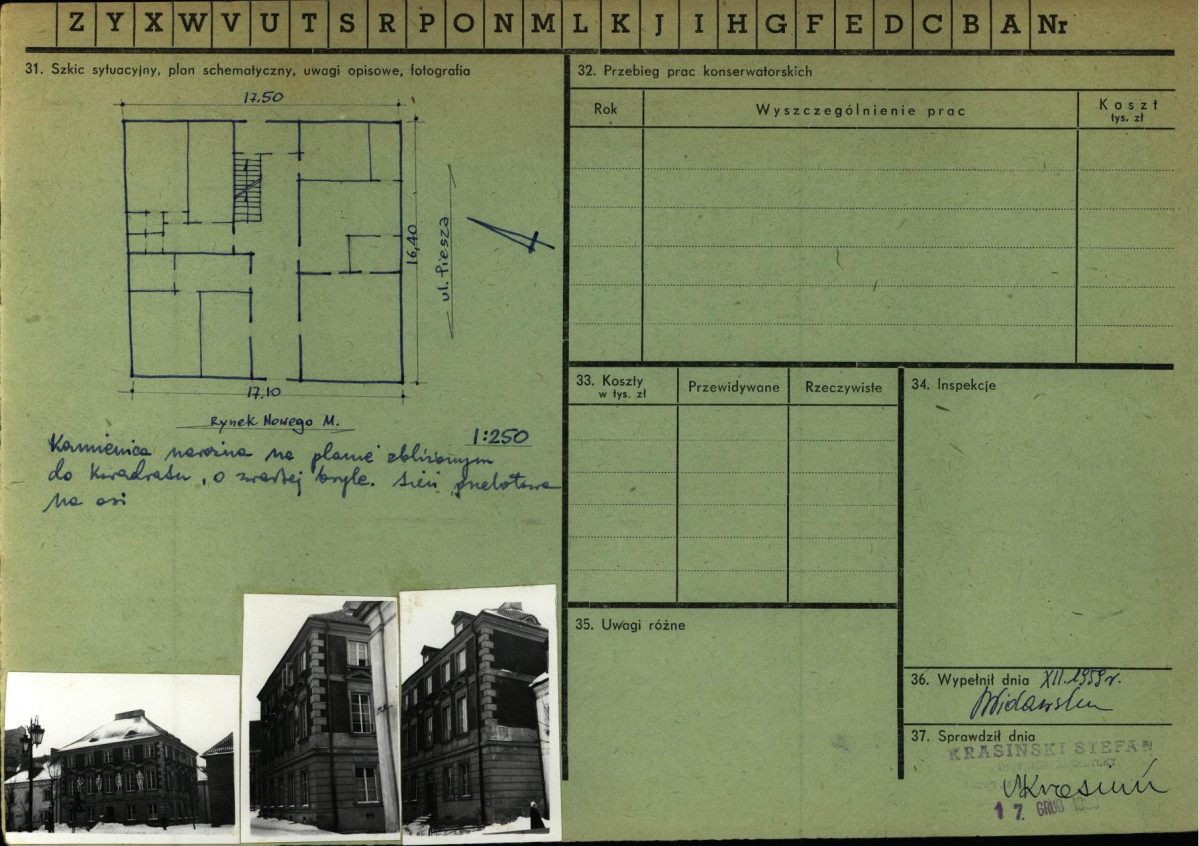 Z Y X W V U T S R P O N M L K J I H G F E D C B A Nr
31. Szkic sytuacyjny, plan schematyczny, uwagi opisowe, fotografia
17.50
16,40
ul. Piesza
17,10
Rynek Nowego M.
1:250
Kamienica narożna na planie zbliżonym
do kwadratu, o zwartej bryle. Sień przelotowa
na osi
32. Przebieg prac konserwatorskich
Rok
Wyszczególnienie prac
Koszt
tys. zł
33. Koszty
w tys. zł
Przewidywane
Rzeczywiste
34. Inspekcje
35. Uwagi różne
36. Wypełnił dnia XII.1959 r.
37. Sprawdził dnia
KRASIŃSKI STEFAN
17. GRUD